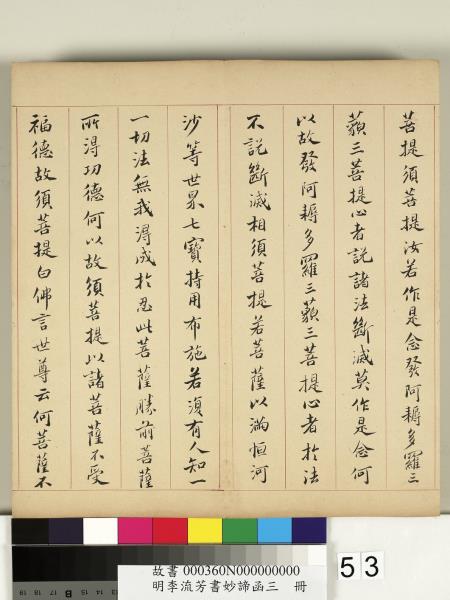 菩提須菩提汝若作是念發阿耨多羅三
藐三菩提心者說諸法斷滅莫作是念何
以故發阿耨多羅三藐三菩提心者於法
不說斷滅相須菩提若菩薩以滿恒河
沙等世界七寶持用布施若復有人知一
一切法無我得成於忍此菩薩勝前菩薩
所得功德何以故須菩提以諸菩薩不受
福德故須菩提白佛言世尊云何菩薩不
故書 000360N000000000
明李流芳書妙諦函三 冊
53